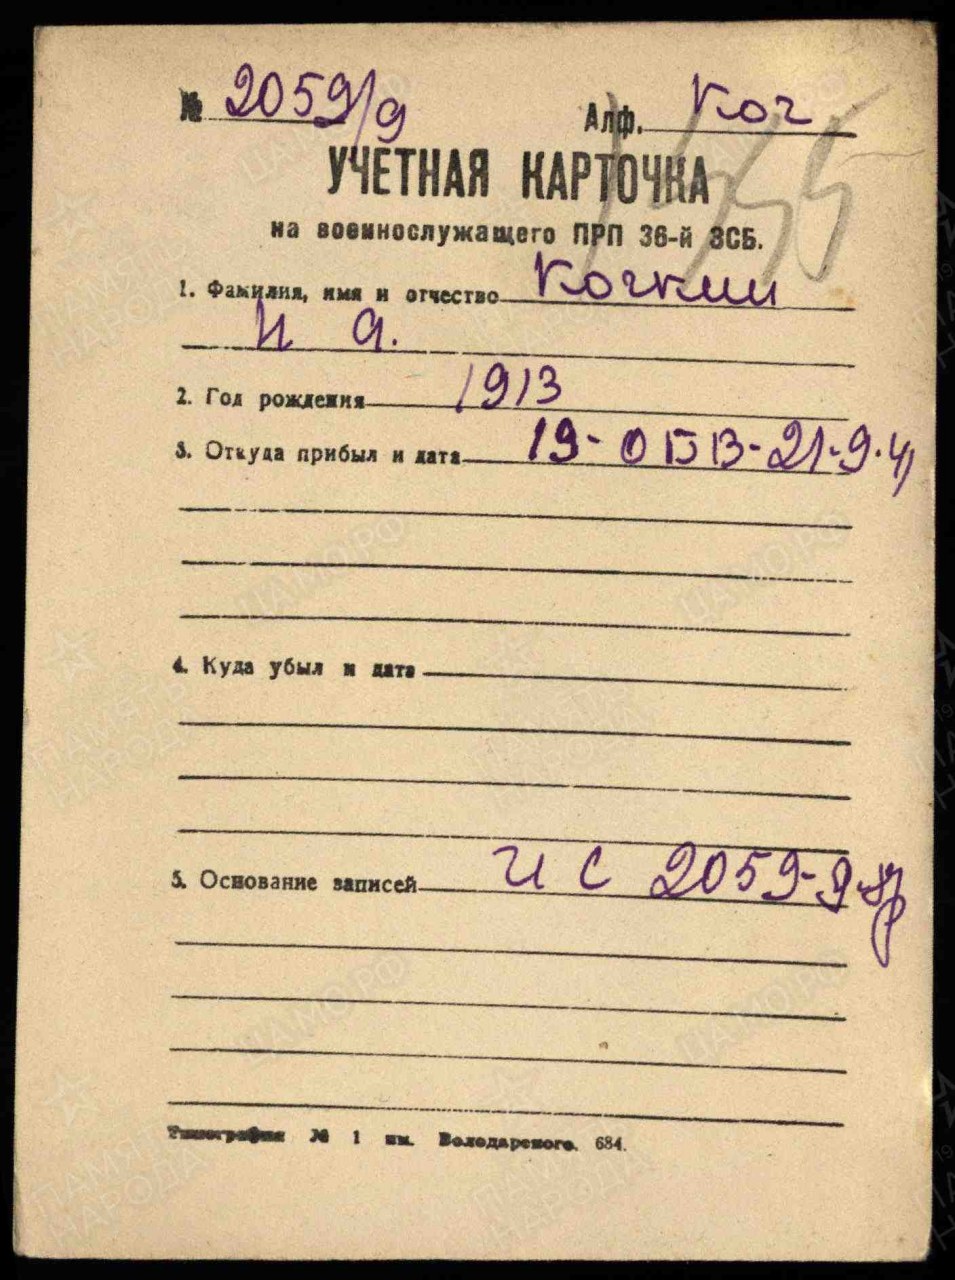 № 2059/9 Алф. Коч
УЧЕТНАЯ КАРТОЧКА
на военнослужащего ПРП 36-й ЗСБ.
1. Фамилия, имя и отчество Кочкин
И Я.
2. Год рождения 1913
3. Откуда прибыл и дата 19-ОБВ-21-9-41
4. Куда убыл и дата
5. Основание записей И С 2059-9
Типография № 1 им. Володарского. 684.
ЦАМО.РФ
ПАМЯТЬ НАРОДА